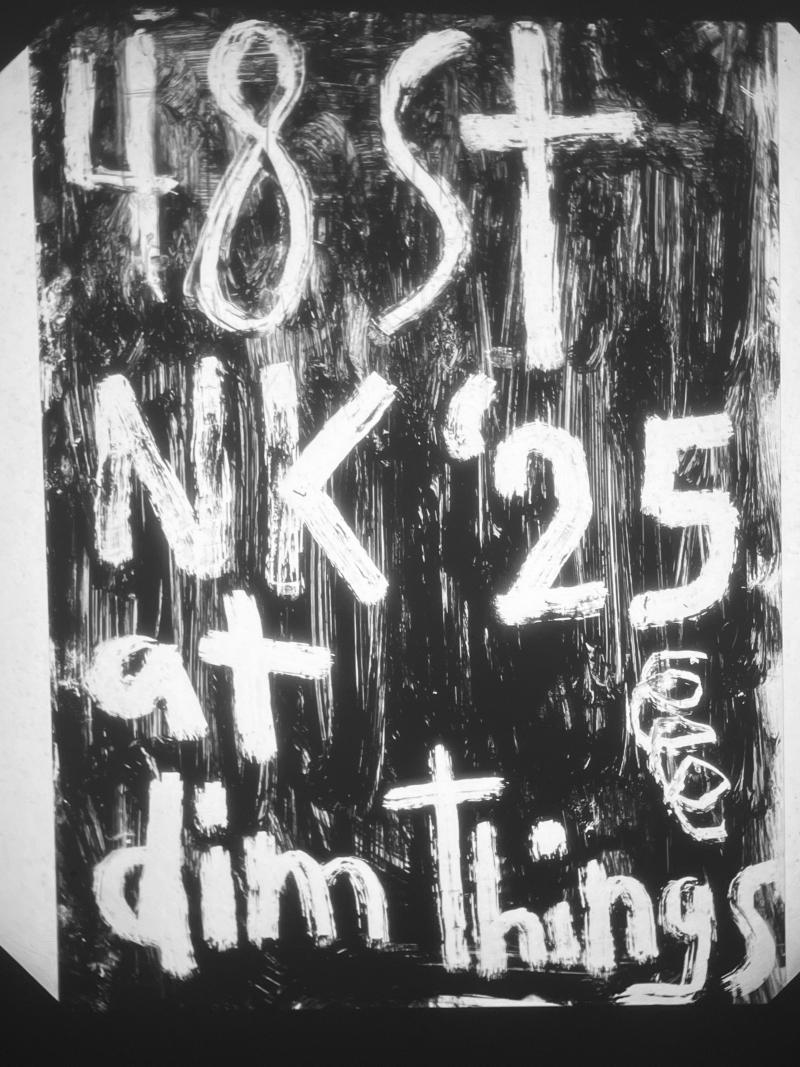 48 St
NK '25
at
dim Things